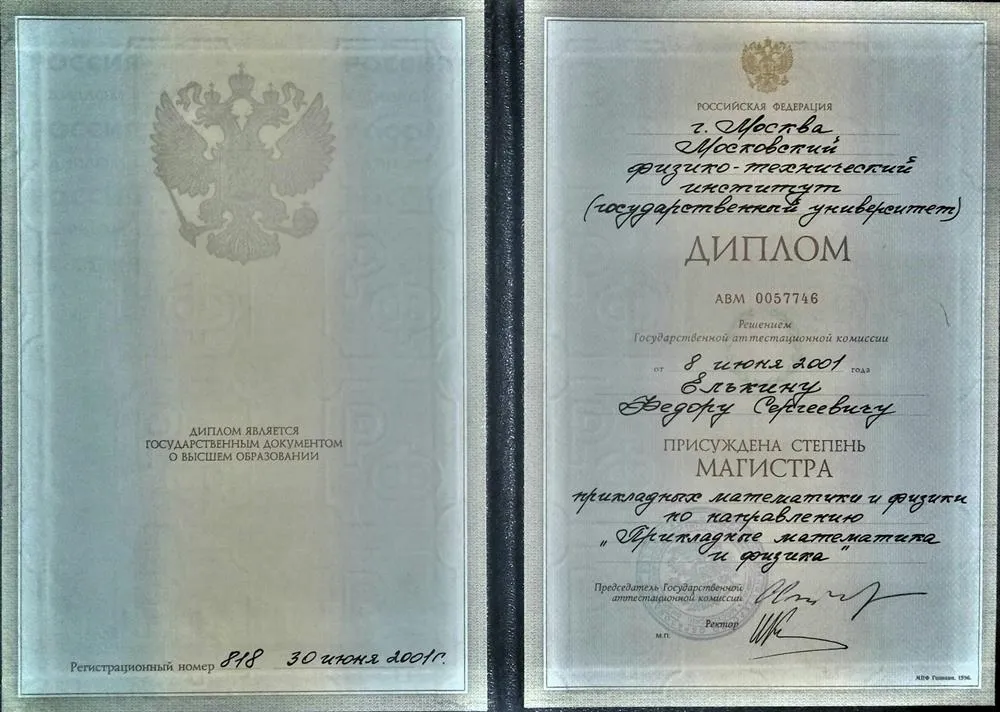 ДИПЛОМ ЯВЛЯЕТСЯ
ГОСУДАРСТВЕННЫМ ДОКУМЕНТОМ
О ВЫСШЕМ ОБРАЗОВАНИИ
Регистрационный номер 818 30 июня 2001г.
РОССИЙСКАЯ ФЕДЕРАЦИЯ
г. Москва
Московский
физико-технический
институт
(государственный университет)
ДИПЛОМ
АВМ 0057746
Решением
Государственной аттестационной комиссии
от 8 июня 2001 года
Елькину
Федору Сергеевичу
ПРИСУЖДЕНА СТЕПЕНЬ
МАГИСТРА
прикладных математики и физики
по направлению
„Прикладные математика
и физика"
Председатель Государственной
аттестационной комиссии
Ректор
М.П.
МПФ Гознака. 1996.